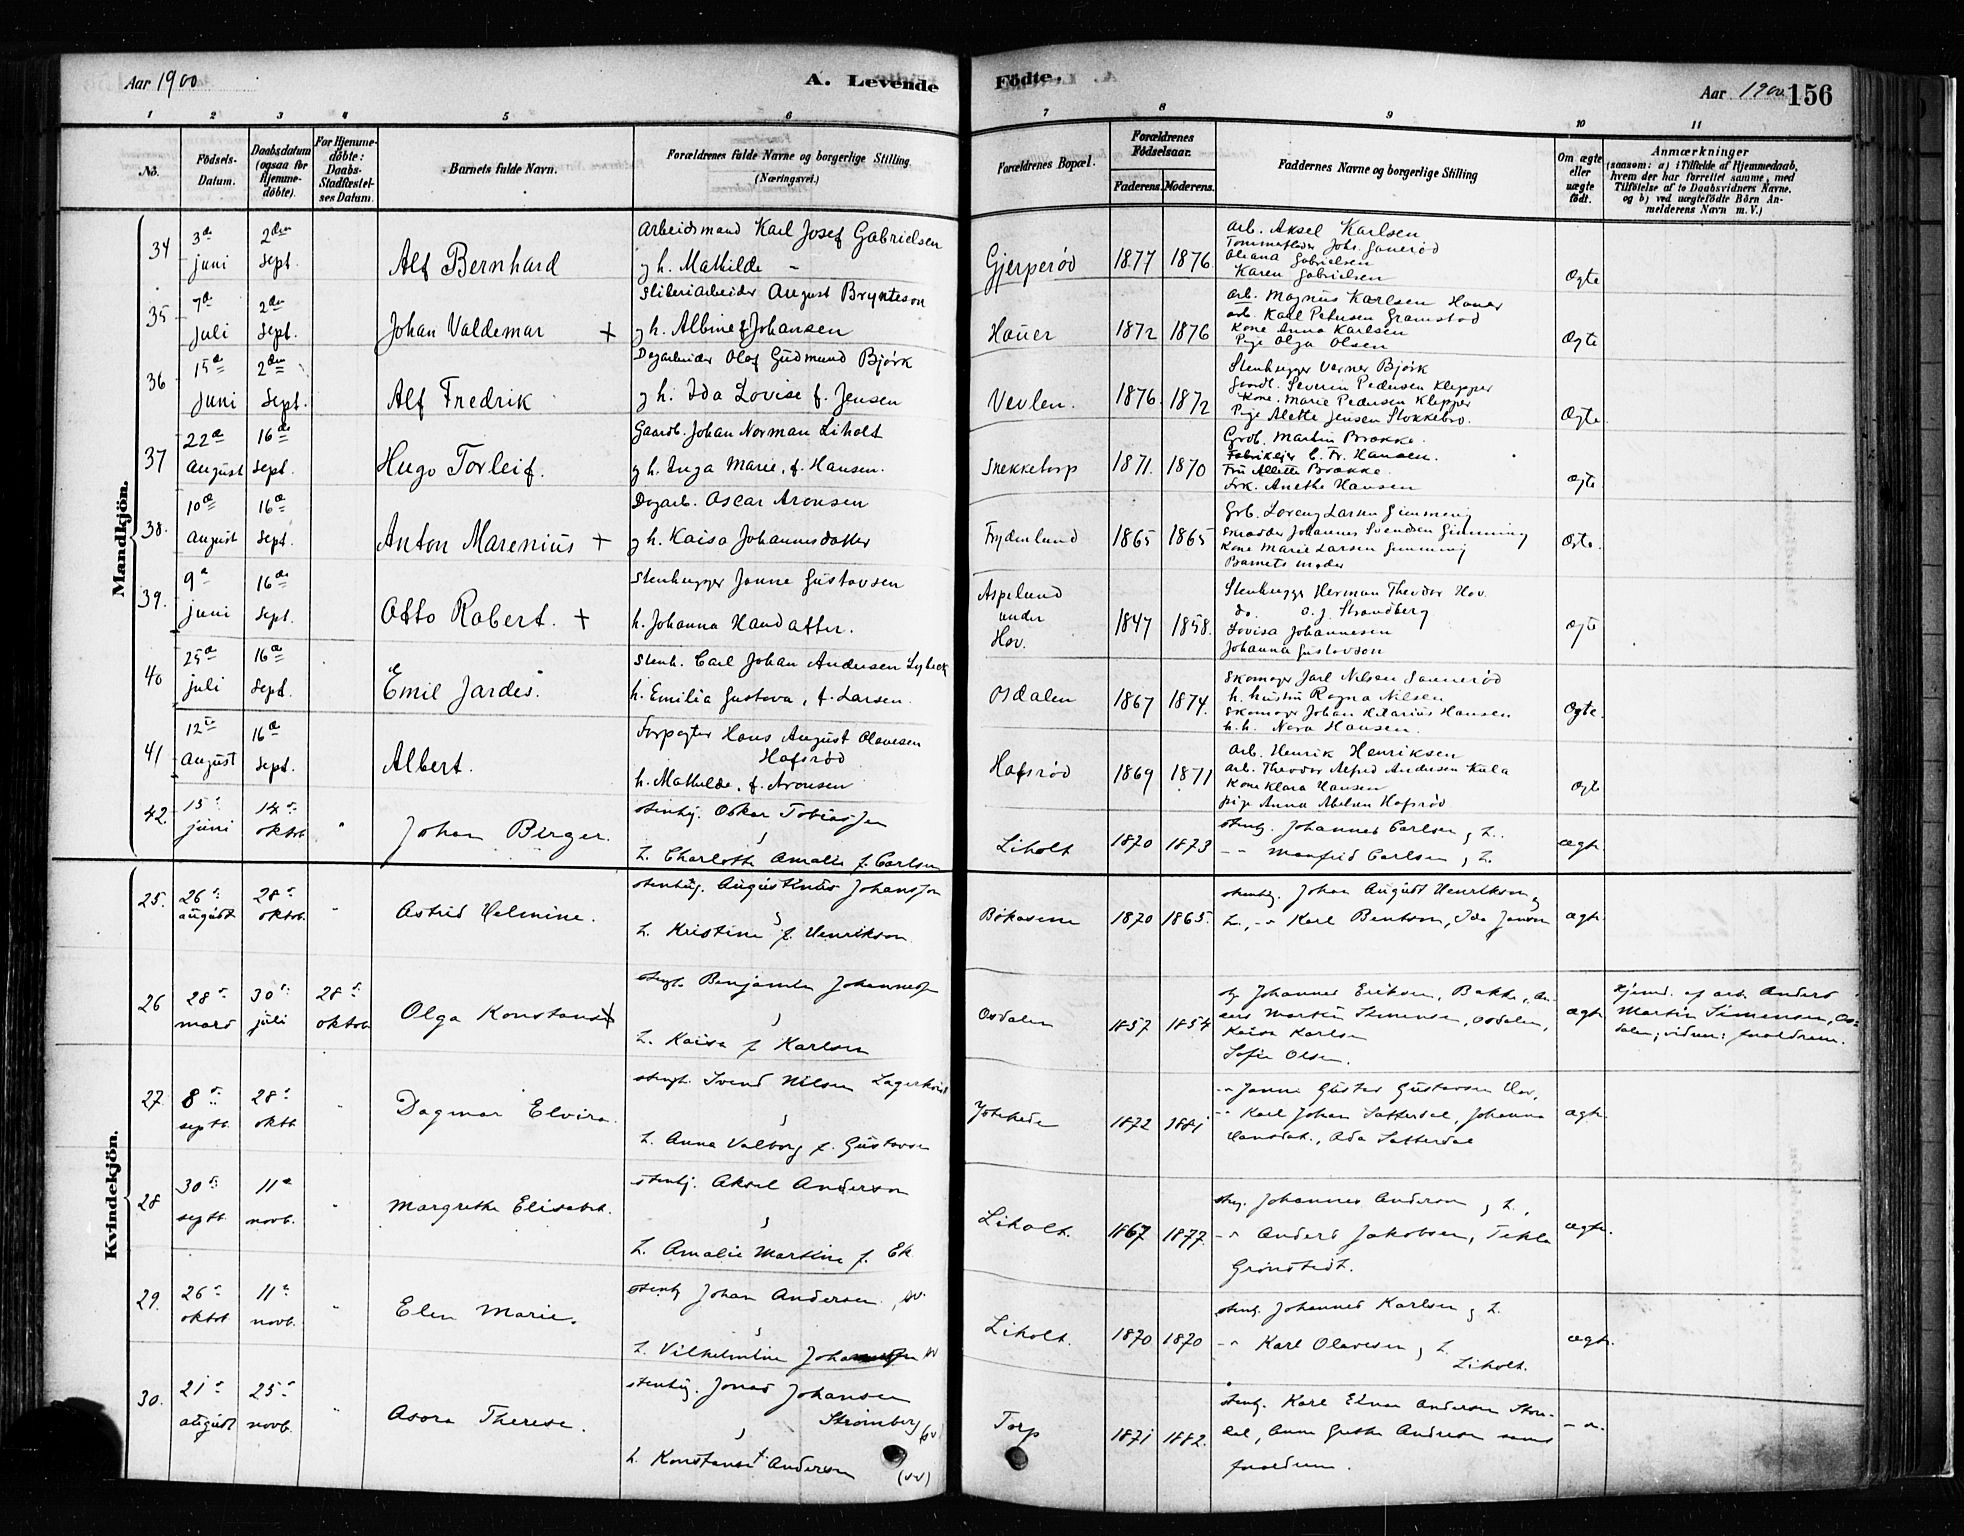 Aar 1900
A. Levende
Födte.
Aar 1900
156
1 2 3 4 5 6 7 8 9 10 11
No.
Födsels-Datum.
Daabsdatum (ogsaa for Hjemme-döbte).
For Hjemme-döbte: Daabs-Stadfæstel-ses Datum.
Barnets fulde Navn.
Forældrenes fulde Navne og borgerlige Stilling. (Næringsvei.)
Forældrenes Bopæl.
Forældrenes Födselsaar.
Faderens. Moderens.
Faddernes Navne og borgerlige Stilling
Om ægte eller uægte födt.
Anmærkninger
(saasom: a) i Tilfælde af Hjemmedaab,
hvem der har forrettet samme, med
Tilföielse af to Daabsvidners Navne.
og b) ved uægtefödte Börn An-
melderens Navn m. V.)
Mandkjön.
34 3die juni 2den Sept. Alf Bernhard
Arbeidsmand Karl Josef Gabrielsen
g h. Mathilde -
Gjerperöd 1877 1876
Arb. Aksel Karlsen
Tømmerfløder Johs. Sanerød
Oleana Gabrielsen
Karen Gabrielsen
Ægte
35 7de juli 2den Sept. Johan Valdemar +
Sliberiarbeider August Brynteson
g h. Albine f Johansen
Hauer 1872 1876
Arb. Magnus Karlsen Hauer
arb. Karl Petersen Gramstad
Kone Anna Karlsen
Pige Olga Olsen
Ægte
36 15de juni 2den Sept. Alf Fredrik
Dagarbeider Olaf Gudmund Bjørk
g h. Ida Lovise f. Jensen
Vevlen. 1876 1872
Stenhugger Verner Bjørk
Gaardb. Severin Pedersen Klepper
Kone Marie Pedersen Klepper
Pige Alette Jensen Stokkebro.
Ægte.
37 22de August 16de Sept. Hugo Torleif.
Gaardb. Johan Norman Liholt
g h. Inga Marie, f. Hansen.
Snekketorp 1871. 1870
Grdb. Martin Brække.
Fabrikeier C. Fr. Hansen.
Fru Allette Brække.
Frk. Anethe Hansen
Ægte
38. 10de August 16de Sept. Anton Marenius +
Dagarb. Oscar Aronsen
g h. Kaisa Johannesdatter
Frydenlund 1865 1865
Grb. Lorenz Larsen Gimming
Skrædder Johannes Svendsen Gimming
Kone Marie Larsen Gimming
Barnets moder
Ægte.
39. 9de juni 16de Sept. Otto Robert. +
Stenhugger Janne Gustavsen
h. Johanna Hansdatter.
Aspelund under Hov. 1847 1858.
Stenhugger Herman Theodor Hov.
do. O. J. Strandberg
Lovisa Johannesen
Johanna Gustovsen
Ægte
40 25de juli 16de Sept. Emil Jardes.
Stenh. Carl Johan Andersen Lybeck
h. Emilia Gustava, f. Larsen.
Osdalen 1867 1874.
Skomager Jarl Nilsen Sannerød
h. hustru Ragna Nilsen
Skomager Johan Hilarius Hansen
h. h. Nora Hansen.
Ægte.
41 12te August 16de Sept. Albert.
Forpagter Hans August Olavesen
Hafsrød
h. Mathilde, f. Aronsen
Hafsrød 1869 1871
Arb. Henrik Henriksen
Arb. Theodor Alfred Andersen Kula
Kone Klara Hansen
Pige Anna Abelsen Hafsrød
Ægte
42. 15de juni 14de oktob " Johan Birger.
stenhg. Oskar Tobiassen
&
h. Charlotte Amalie f. Carlsen
Liholt 1870 1873
stenhg. Johannes Carlsen & h.
-"- Manfred Carlsen & h.
ægte
Kvindekjön.
25. 26de august 28de oktob. " Astrid Helmine.
stenhug. Augustinus Johansen
&
h. Kristine f. Henrikson
Bökasene 1870 1865.
stenhg. Johan August Henrikson &
h., -"- Karl Bentson, Ida Janson
ægte
26 28de mars 30te juli 28de oktob. Olga Konstanse +
stenh. Benjamin Johannesen
&
h. Kaisa f Karlsen
Osdalen 1857 1854
Johannes Eriksen, Bakke, An-
ders Martin Simensen, Osdalen,
Kaisa Karlsen
Sofie Olsen.
ægte
Hjemd. af arb. Anders
Martin Simensen, Os-
dalen; vidner: forældrene.
27. 8de septb. 28de oktb. " Dagmar Elvira.
stenh. Svend Nilsen Lagerkvist
&
h. Anna Valborg f. Gustavsen
1872 1881
-"- Janne Gustav Gustavsen Hov,
-"- Karl Johan Satterdal, Johanna
Hansdat., Ada Satterdal
ægte.
28 30te septb. 11te novb. " Margrethe Elisabet.
stenhg. Aksel Anderson
&
h. Amalie Martine f. Ek.
Liholt. 1867 1877.
stenhg. Johannes Anderson & h.,
-"- Anders Jakobsen, Tekla
Grönstedt.
ægte.
29. 26de oktob 11te novb. " Elen Marie.
stenhg Johan Andersen, sv.
&
h. Vilhelmine sv
Liholt. 1870 1870
stenhg. Johannes Karlsen & h.
-"- Karl Olavesen & h.
Liholt.
ægte.
30. 21de august 25de novb. " Asora Therese.
stenhug. Jonas Johansen
Strömberg (sv)
&
h. Konstanse Andersen (sv)
Torp 1871 1882.
stenhg. Karl Einar Andersen Sten-
dal, Anne Grethe Andersen samt
forældrene.
-"-